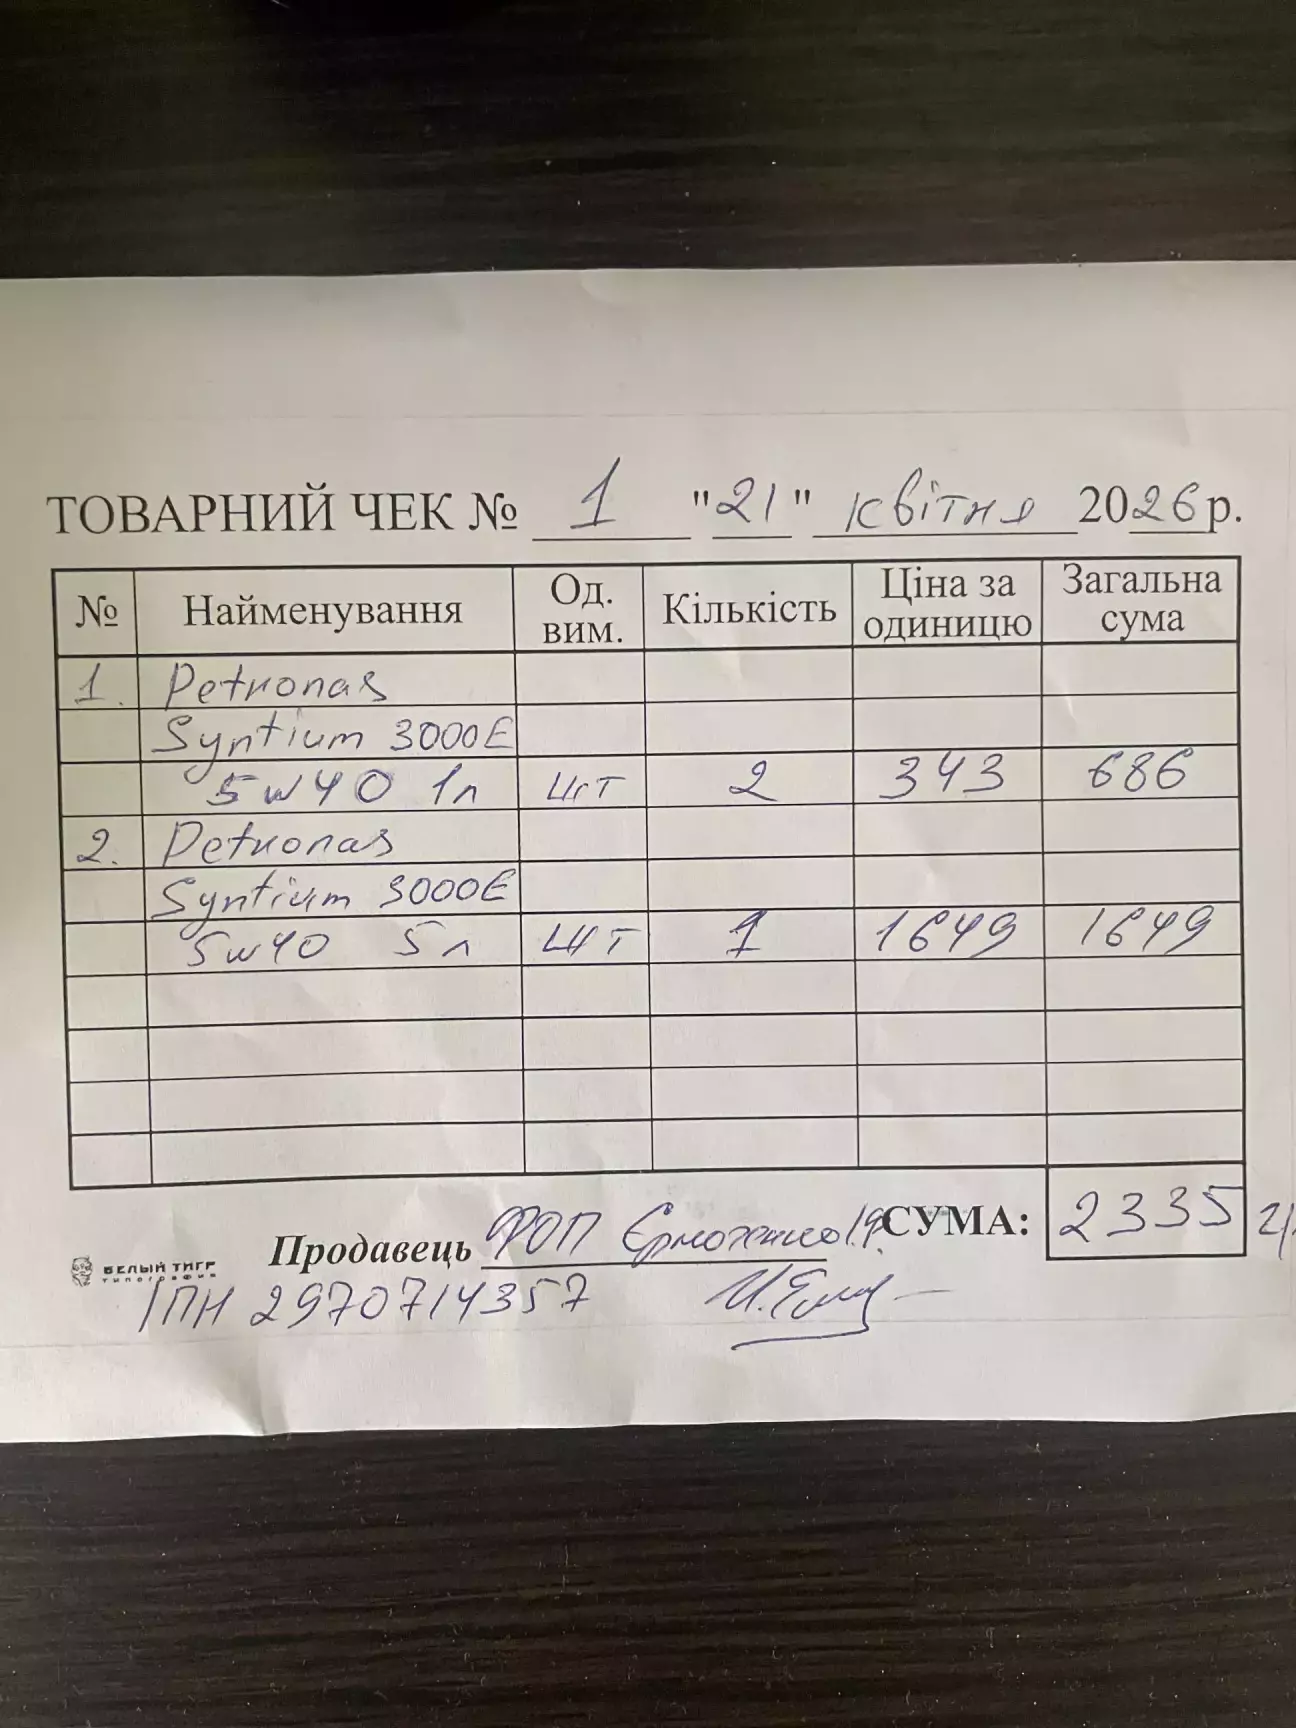 ТОВАРНИЙ ЧЕК № 1 "21" квітня 2026 р.
№ Найменування Од. вим. Кількість Ціна за одиницю Загальна сума
1. Petronas
Syntium 3000E
5w40 1л шт 2 343 686
2. Petronas
Syntium 3000E
5w40 5л шт 1 1649 1649
Продавець ФОП СУМА: 2335
БЕЛЫЙ ТИГР
типография
ІПН 2970714357